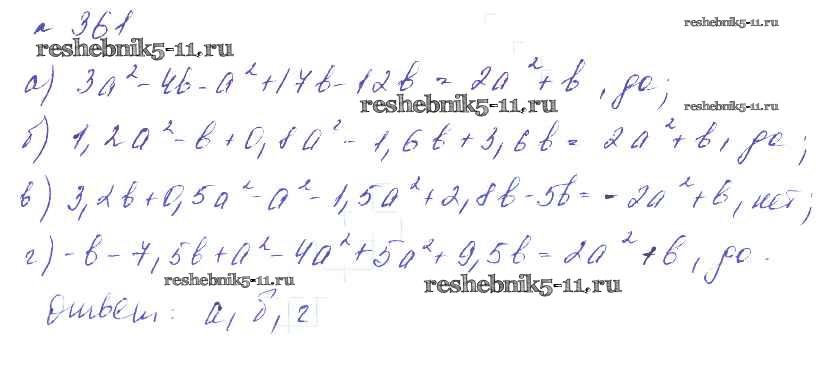 № 361
reshebnik5-11.ru
reshebnik5-11.ru
а) 3a² - 4b - a² + 17b - 12b = 2a² + b, да;
reshebnik5-11.ru
reshebnik5-11.ru
б) 1,2a² - b + 0,8a² - 1,6b + 3,6b = 2a² + b, да;
в) 3,2b + 0,5a² - a² - 1,5a² + 2,8b - 5b = - 2a² + b, нет;
г) -b - 7,5b + a² - 4a² + 5a² + 9,5b = 2a² + b, да.
reshebnik5-11.ru
reshebnik5-11.ru
Ответ: а, б, г